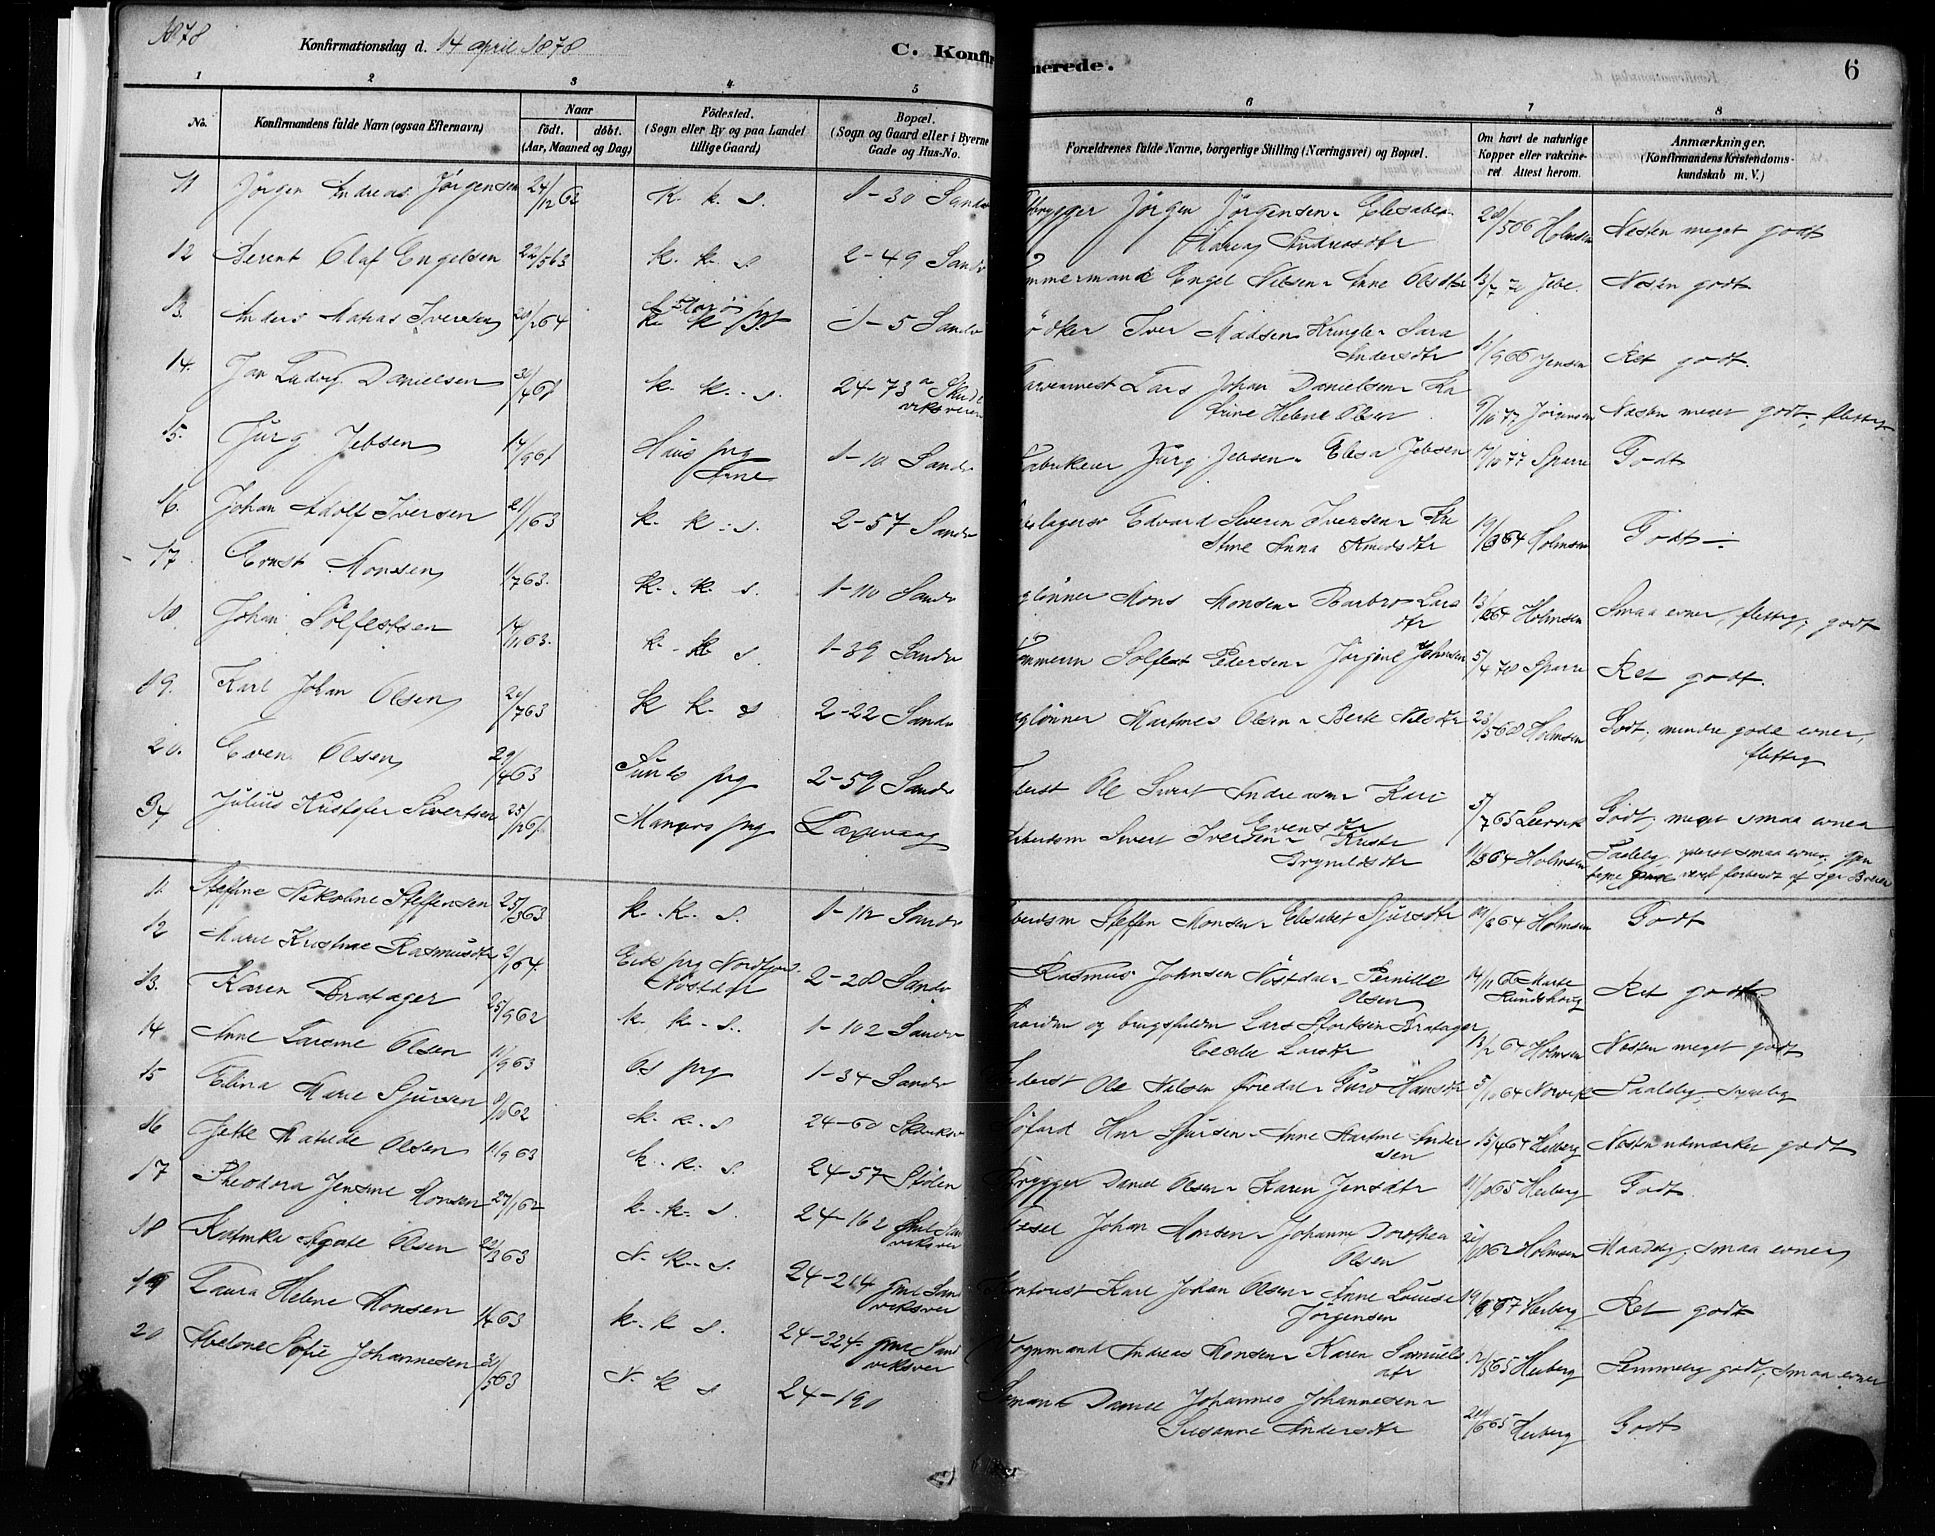 1878
Konfirmationsdag d. 14 april 1878
C. Konfir
merede.
6
1 2 3 4 5 6 7 8
No.
Konfirmandens fulde Navn (ogsaa Efternavn)
Naar
födt. döbt.
(Aar, Maaned og Dag)
Födested.
(Sogn eller By og paa Landet
tillige Gaard)
Bopæl.
(Sogn og Gaard eller i Byerne
Gade og Hus-No.
Forældrenes fulde Navne, borgerlige Stilling (Næringsvei) og Bopæl.
Om havt de naturlige
Kopper eller vakcine-
ret Attest herom.
Anmærkninger.
(Konfirmandens Kristendoms-
kundskab m. V.)
11 Jörgen Andreas Jörgensen 24/12 62 K. k. s. 1-30 Sandv
brygger Jörgen Jörgensen - Elisabet
Maria Andersdtr 28/5 66 Holmsen Næsten meget godt
12 Berent Olaf Engelsen 22/5 63 k. k. s. 2-49 Sandv
mmermand Engel Nilsen - Anne Olsdtr 13/7 71 Jebe. Næsten godt
13. Anders Matias Iversen 20/1 64 1-5 Sandv
öker Iver Madsen Kringle - Sara
Andersdtr 11/9 66 Jensen Ret godt.
14. Jan Ludvig Danielsen 3/4 61 k. k. s. 24-73a Skudeviksveien
Lars Johan Danielsen - Ka
trine Helene Olsen 9/10 77 Jörgensen Næsten meget godt, flettig
15. Jürg Jebsen 14/9 61 Haus prg
Arne 1-10 Sandv
Fabrikeier Jürg Jebsen - Elisa Jebsen 17/10 77 Sparre Godt
16. Johan Adolf Iversen 21/1 63 k. k. s. 2-57 Sandv
slagersv Edvard Severin Iversen - Kri
stine Anna Knudsdtr 19/3 64 Holmsen Godt -
17. Ernst Monsen 11/7 63. k. k. s. 1-110 Sandv
glönner Mons Monsen - Barbro Lars
dtr Holmsen Smaa evner, flettig, godt
18. Johan Solfestsen 14/11 63. k. k. s 1-39 Sandv
ömmerm Solfest Petersen - Jörgine Johnsen 5/4 78 Sparre Ret godt.
19. Karl Johan Olsen 21/7 63 k k. s 2-22 Sandv
glönner Martines Olsen - Berte Nilsdtr 23/5 68 Holmsen Godt, mindre gode evner,
flettig
20. Even Olsen 29/4 63 Sunds prg 2-59 Sandv
derst Ole Sivert Andreasen - Kari
Evensdtr 5/7 65 Leervik Godt, meget smaa evner
34 Julius Kristofer Sivertsen 25/12 61 Mangers prg Laxevaag
Arbeidsm Sivert Iversen - Kristi
Brynildsdtr 11/3 64 Holmsen Taalelig, yderst smaa evner.
11. Steffine Nikoline Steffensen 25/3 63 k. k. s. 1-12 Sandv
beidsm Steffen Monsen - Elisabet Sjursdtr Holmsen Godt
12 Marie Kristine Rasmusdtr 2/1 64. Eids prg Nordfjord
Nöstdal 2-28 Sandv
Rasmus Johnsen Nöstdal - Pernille
Olsen 14/11 66 Ret godt
13. Karen Bratager 25/9 62 k. k. s. 1-102 Sandv
aardm og brugsfuldm Lars Storksen Bratager
Cecilie Larsdtr 13/2 64 Holmsen Næsten meget godt
14. Anne Larsine Olsen 11/9 63 Os prg 1-34 Sandv
derst Ole Nilsen - Guro Hansdtr 5/10 64 Norvik Taalelig
15 Elina Marie Sjursen 9/10 62 k. k. s 24-60
Söfard Hnr Sjursen - Anne Martine Ander
sen 15/4 64 Heiberg Næsten udmærket godt
16 Jette Matilde Olsen 11/9 63 k. k. s. 24-57 Stölen
Brygger Daniel Olsen - Karen Jensdtr Heiberg Godt
17 Theodora Jensine Monsen 27/1 62 k. k. s. 24-162 Gml Sand
viksvei
Johan Monsen - Johanne Dorothea
Olsen Holmsen Maadelig, smaa evner
18 Katinka Agate Olsen 22/3 63 N. k. s. 24-214 Gml Sand
viksvei
Kontorist Karl Johan Olsen - Anne Louise
Jörgensen Heiberg Ret godt
19 Laura Helene Monsen 1/4 63 k. k s. 24-224. Gml Sand
viksvei
Vognmand Andreas Monsen - Karen Samuels
dtr Heiberg Temmelig godt, smaa evner
20 Abelone Sofie Johannesen 30/5 63 N. k s 24-190
Sömand Daniel Johannes Johannesen -
Susanne Andersdtr 20/6 65 Heiberg Godt